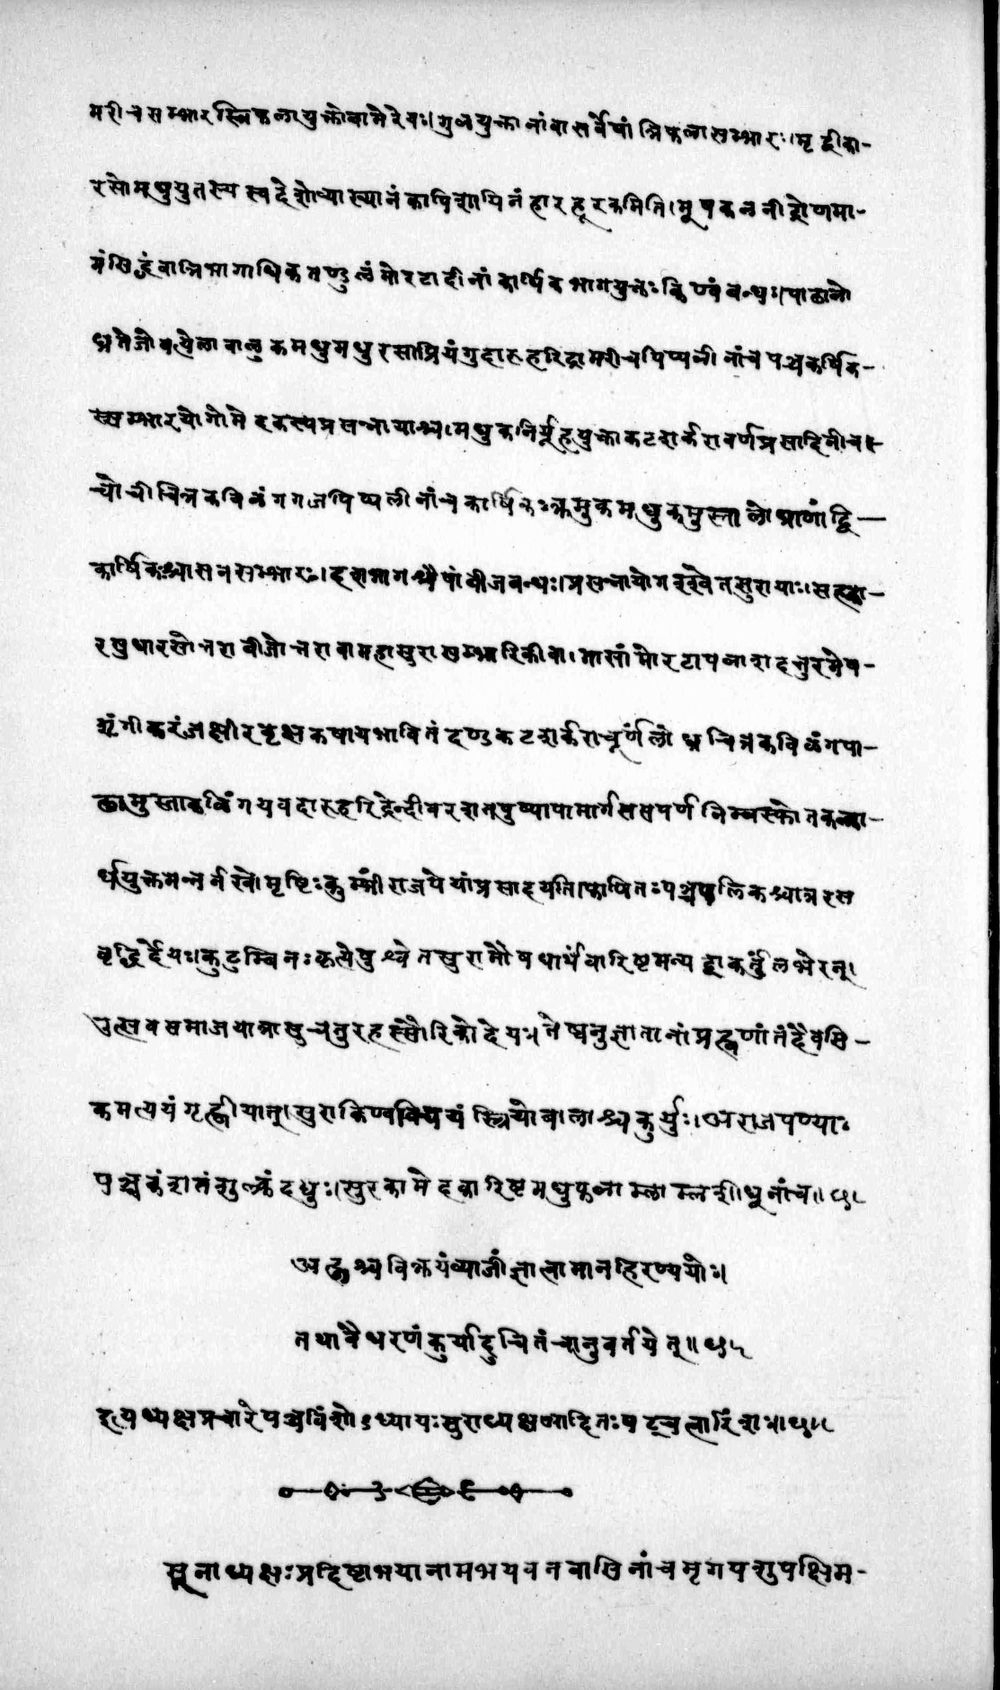 मरीचसम्भारस्त्रिफलायुक्तोवामैरेयः।गुडयुक्तानांवासर्वेषांत्रिफलासम्भारः।मृद्वीका-
रसोमधुयुतस्यस्वदेशोव्याख्यानंकापिशायिनंहारहूरकमिति।मूषकलनीद्रोणमा-
मंसिद्धंवात्रिभागाधिकतण्डुलंमोरटादीनांकार्षिकभागयुक्तःकिण्वंबन्धः।पाठालो
ध्रतेजोवत्येलावालुकमधुमधुरसाप्रियंगुदारुहरिद्रामरीचपिप्पलीनांचपञ्चकर्षिक-
स्सम्भारयोगोमेदकस्यप्रसन्नायाश्च।मधुकनिर्यूहयुक्ताकटशर्करावर्णप्रसादिनीच।
चोचचित्रकविळंगगजपिप्पलीनांचकार्षिकःक्रमुकमधुकमुस्तालोध्राणांद्वि-
कार्षिकश्चासवसम्भारः।दशभागश्चैषांबीजबन्धः।प्रसन्नायोगश्श्वेतसुरायाः।सहका-
रसुधारसोत्तराबीजोत्तरावामहासुरासम्भारिकीवा।तासांमोरटापलाशदत्तुरमेष-
शृंगीकरंजक्षीरवृक्षकषायभावितंदग्धकटशर्कराचूर्णंलोध्रचित्रकविळंगपा-
ठामुस्ताकळिंगयवदारुहरिद्रेन्दीवरशतपुष्पापामार्गसप्तपर्णनिम्बस्फोतकल्का-
र्धयुक्तमन्तर्नखोमुष्टिःकुम्भींराजपेयांप्रसादयति।फाणितःपञ्चपलिकश्चात्ररस
वृद्धिर्देयः।कुटुम्बिनःकृत्येषुश्वेतसुरामौषधार्थंवारिष्टमन्यद्वाकर्तुंलभेरन्।
उत्सवसमाजयात्रासुचतुरहस्सौरिकोदेयः।तेष्वनुज्ञातानांप्रह्वणांतंदैवसि-
कमत्ययंगृह्णीयात्।सुराकिण्वविचयंस्त्रियोबालाश्चकुर्युः।अराजपण्याः
पञ्चकंशतंशुल्कंदद्युः।सुरकामेदकारिष्टमधुफलाम्लाम्लशीधूनांच॥
अह्नश्चविक्रयंव्याजींज्ञात्वामानहिरण्ययोः।
तथावैधरणंकुर्यादुचितंचानुवर्तयेत्॥
इत्यध्यक्षप्रचारेपञ्चविंशोऽध्यायःसुराध्यक्षआदितःषट्चत्वारिंशः॥
सूनाध्यक्षःप्रदिष्टाभयानामभयवनवासिनांचमृगपशुपक्षिम-